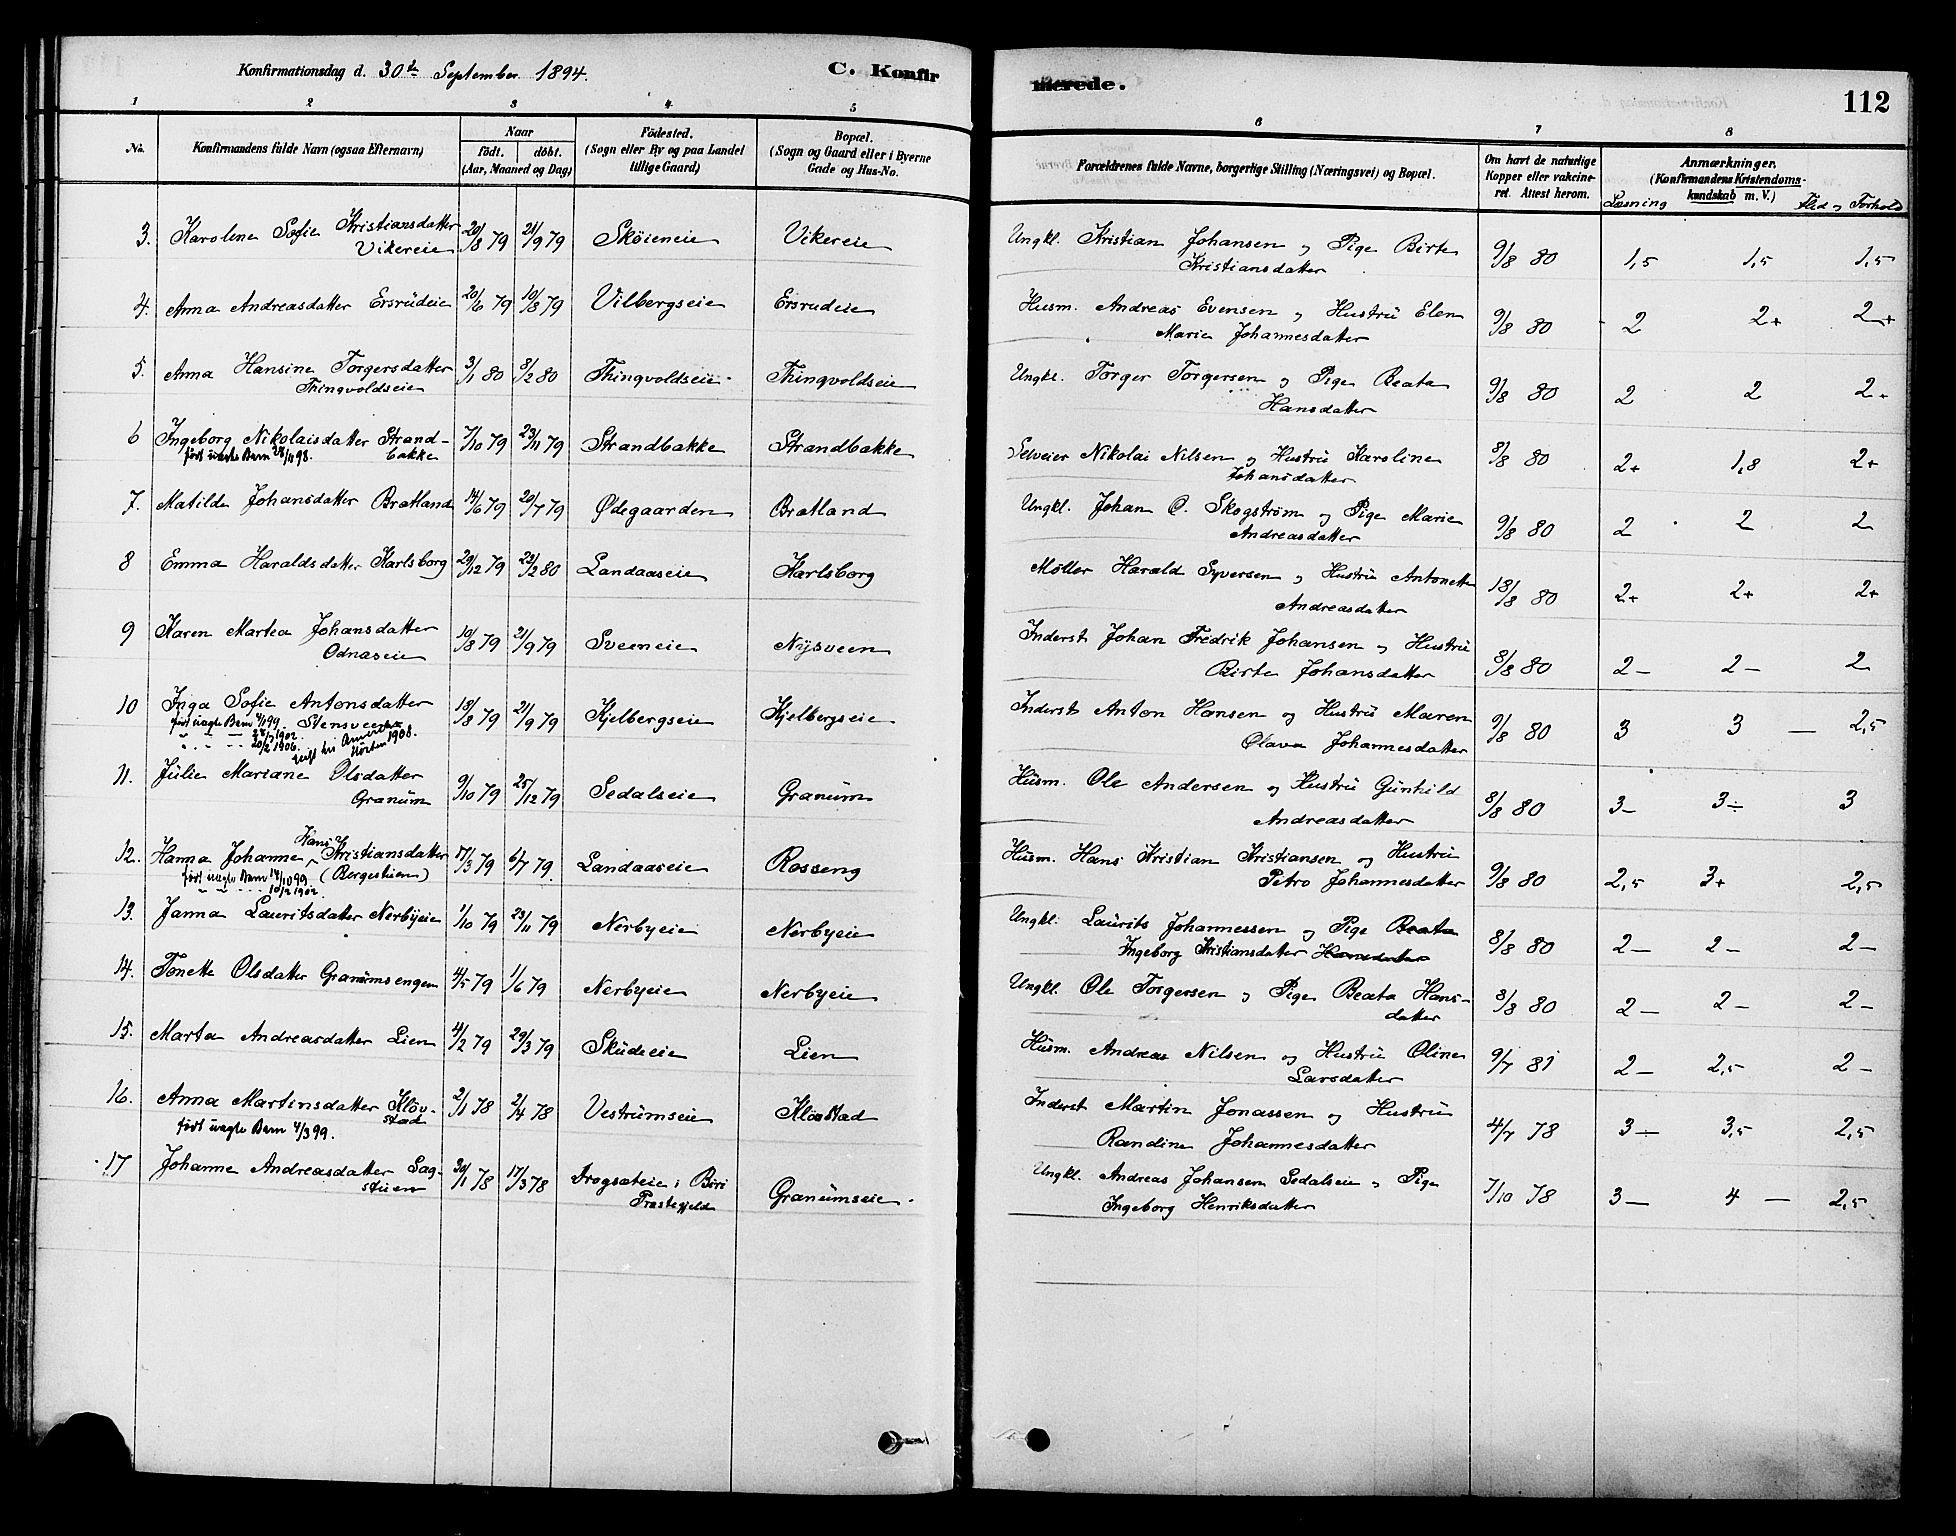 Konfirmationsdag d. 30te September 1894.
C. Konfirmerede.
112
1 2 3 4 5 6 7 8
No. Konfirmandens fulde Navn (ogsaa Efternavn) Naar födt. döbt. (Aar, Maaned og Dag) Födested. (Sogn eller By og paa Landet tillige Gaard) Bopæl. (Sogn og Gaard eller i Byerne Gade og Hus-No. Forældrenes fulde Navne, borgerlige Stilling (Næringsvei) og Bopæl. Om havt de naturlige Kopper eller vakcineret. Attest herom. Anmærkninger. (Konfirmandens Kristendomskundskab m. V.) Læsning Flid og Forhold
3. Karoline Sofie Kristiansdatter 20/8 79 21/9 79 Skøieneie Vikereie Ungkl. Kristian Johansen og Pige Birte 9/8 80 1,5 1,5 1,5
Vikereie Kristiansdatter
4. Anna Andreasdatter Ersrudeie 20/6 79 10/8 79 Vilbergseie Ersrudeie Husm. Andreas Evensen og Hustru Elen 9/8 80 2 2+ 2+
Marie Johannesdatter
5. Anna Hansine Torgersdatter 3/1 80 8/2 80 Thingvoldseie Thingvoldseie Ungkl. Torger Torgersen og Pige Beata 9/8 80 2 2 2+
Thingvoldseie Hansdatter
6 Ingeborg Nikolaisdatter Strand- 7/10 79 23/11 79 Strandbakke Strandbakke Selveier Nikolai Nilsen og Hustru Karoline 8/8 80 2+ 1,8 2+
født uægte Barn 28/11 98. bakke Johansdatter
7. Matilde Johansdatter Bratland 14/6 79 20/7 79 Ødegaarden Bratland Ungkl. Johan O. Skogstrøm og Pige Marie 9/8 80 2 2 2
Andreasdatter
8 Emma Haraldsdatter Karlsborg 29/12 79 22/2 80 Landaaseie Karlsborg Møller Harald Syversen og Hustru Antonette 18/8 80 2+ 2+ 2+
Andreasdatter
9 Karen Martea Johansdatter 10/8 79 21/9 79 Sveeneie Nysveen Inderst Johan Fredrik Johansen og Hustru 8/8 80 2— 2— 2
Odnaseie Birte Johansdatter
10 Inga Sofie Antonsdatter 18/8 79 21/9 79 Kjelbergseie Kjelbergseie Inderst Anton Hansen og Hustru Maren 9/8 80 3 3 — 2,5
født uægte Barn 4/1 99. Stensveen Olava Johannesdatter
1902.
20/2 1906. 1908.
11. Julie Mariane Olsdatter 9/10 79 25/12 79 Sedalseie Granum Husm. Ole Andersen og Hustru Gunhild 8/8 80 3— 3÷ 3
Granum Andreasdatter
12. Hanna Johanne Hans Kristiansdatter 17/3 79 6/7 79. Landaaseie Rosseng Husm. Hans Kristian Kristiansen og Hustru 9/8 80 2,5 3+ 2,5
født uægte Barn 14/10 99 (Bergestuen) Petro Johannesdatter
" " " 10/2 1902.
13. Janna Lauritsdatter Nerbyeie 1/10 79 23/11 79 Nerbyeie Nerbyeie Ungkl. Laurits Johannessen og Pige Beata 8/8 80 2— 2— 2—
Ingeborg Kristiansdatter Hansdatter
14. Tonette Olsdatter Granumsengen 4/5 79 1/6 79 Nerbyeie Nerbyeie Ungkl. Ole Torgersen og Pige Beata Hans- 8/8 80 2— 2— 2—
datter
15. Marta Andreasdatter Lien 4/2 79 29/3 79 Skudeie Lien Husm. Andreas Nilsen og Hustru Oline 9/7 81 2— 2,5 2—
Larsdatter
16. Anna Martinsdatter Kløv- 2/1 78 2/4 78 Vestrumseie Kløvstad Inderst Martin Jonassen og Hustru 4/7 78 3— 3,5 2,5
stad
født uægte Barn 4/3 99. Randine Johannesdatter
17 Johanne Andreasdatter Sag- 30/1 78 17/3 78 Drogsæteie i Biri Granumseie Ungkl. Andreas Johansen Sedalseie og Pige 7/10 78 3— 4 — 2,5
stuen Præstegjeld Ingeborg Henriksdatter